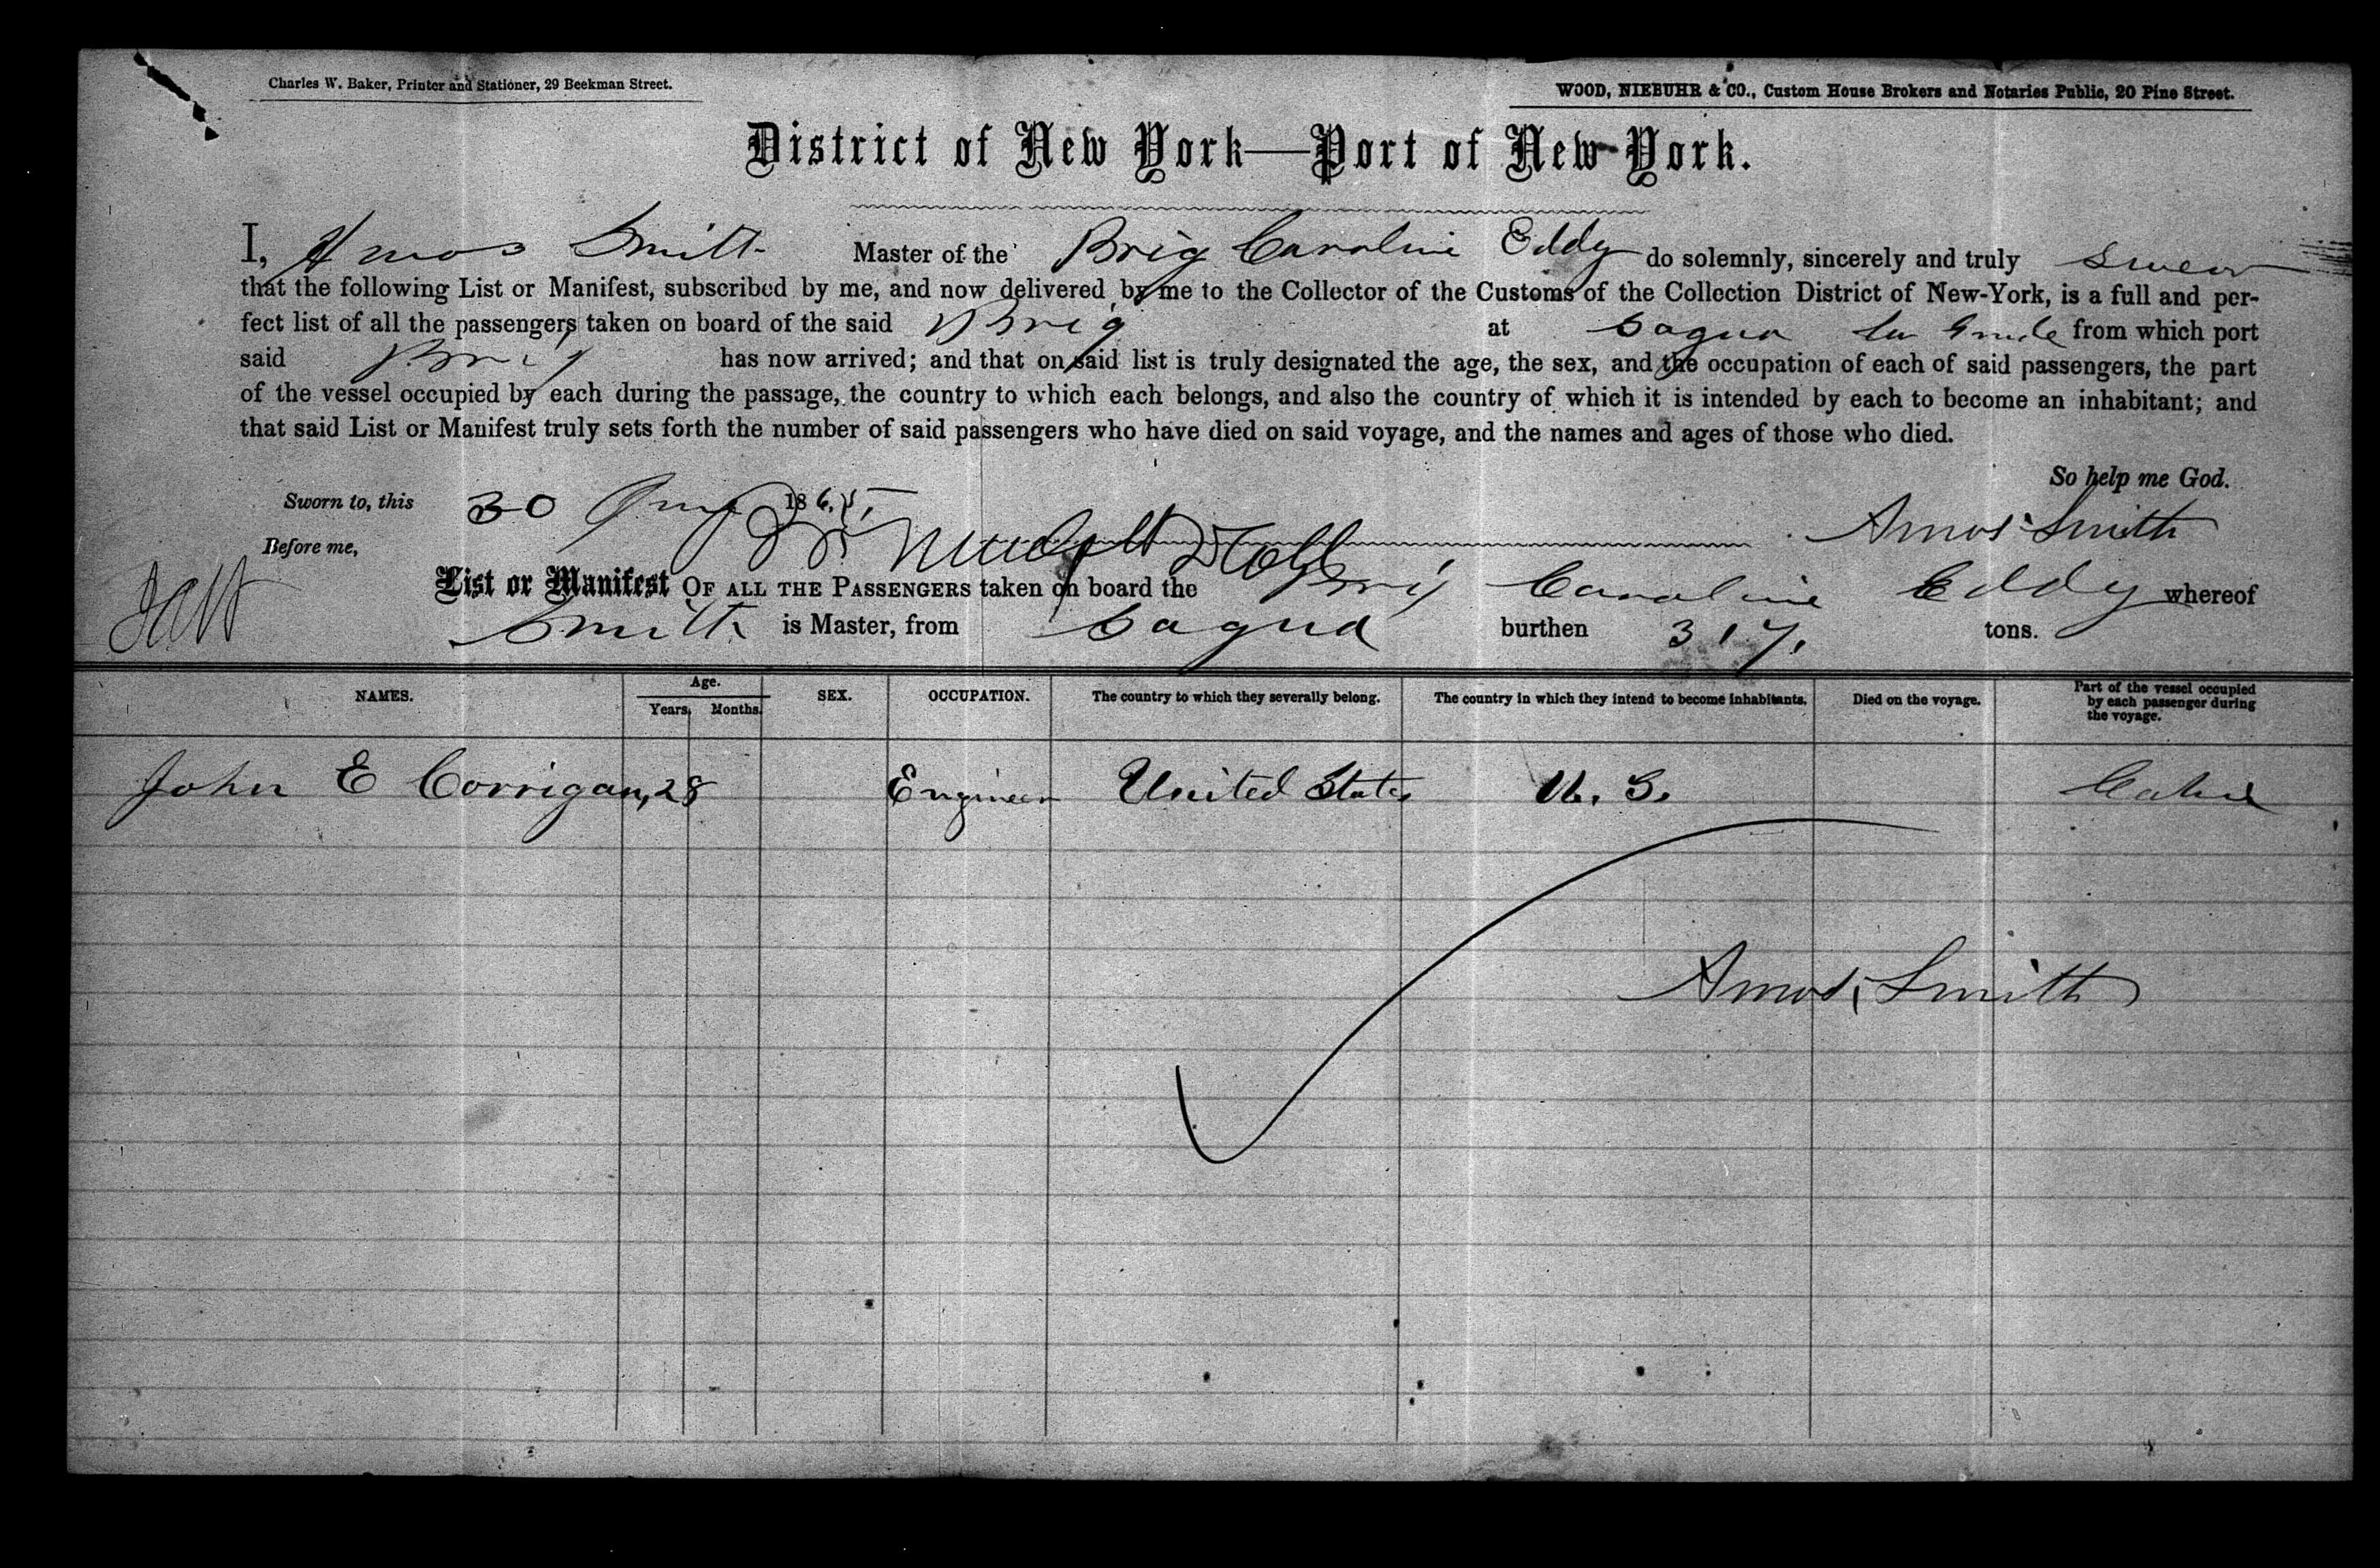 Charles W. Baker, Printer and Stationer, 29 Beekman Street.
WOOD, NIEBUHR & CO., Custom House Brokers and Notaries Public, 20 Pine Street.
District of New York—Port of New York.
I, Amos Smith Master of the Brig Caroline Eddy do solemnly, sincerely and truly swear
that the following List or Manifest, subscribed by me, and now delivered by me to the Collector of the Customs of the Collection District of New-York, is a full and per-
fect list of all the passengers taken on board of the said Brig at Sagua la Grande from which port
said Brig has now arrived; and that on said list is truly designated the age, the sex, and the occupation of each of said passengers, the part
of the vessel occupied by each during the passage, the country to which each belongs, and also the country of which it is intended by each to become an inhabitant; and
that said List or Manifest truly sets forth the number of said passengers who have died on said voyage, and the names and ages of those who died.
So help me God.
Sworn to, this 30 1865,
Amos Smith
Before me,
List or Manifest OF ALL THE PASSENGERS taken on board the Brig Caroline Eddy whereof
Smith is Master, from Sagua burthen 317. tons.
NAMES. Age. Years. Months. SEX. OCCUPATION. The country to which they severally belong. The country in which they intend to become inhabitants. Died on the voyage. Part of the vessel occupied by each passenger during the voyage.
John E Corrigan, 28 Engineer United States U. S. Cabin
Amos Smith